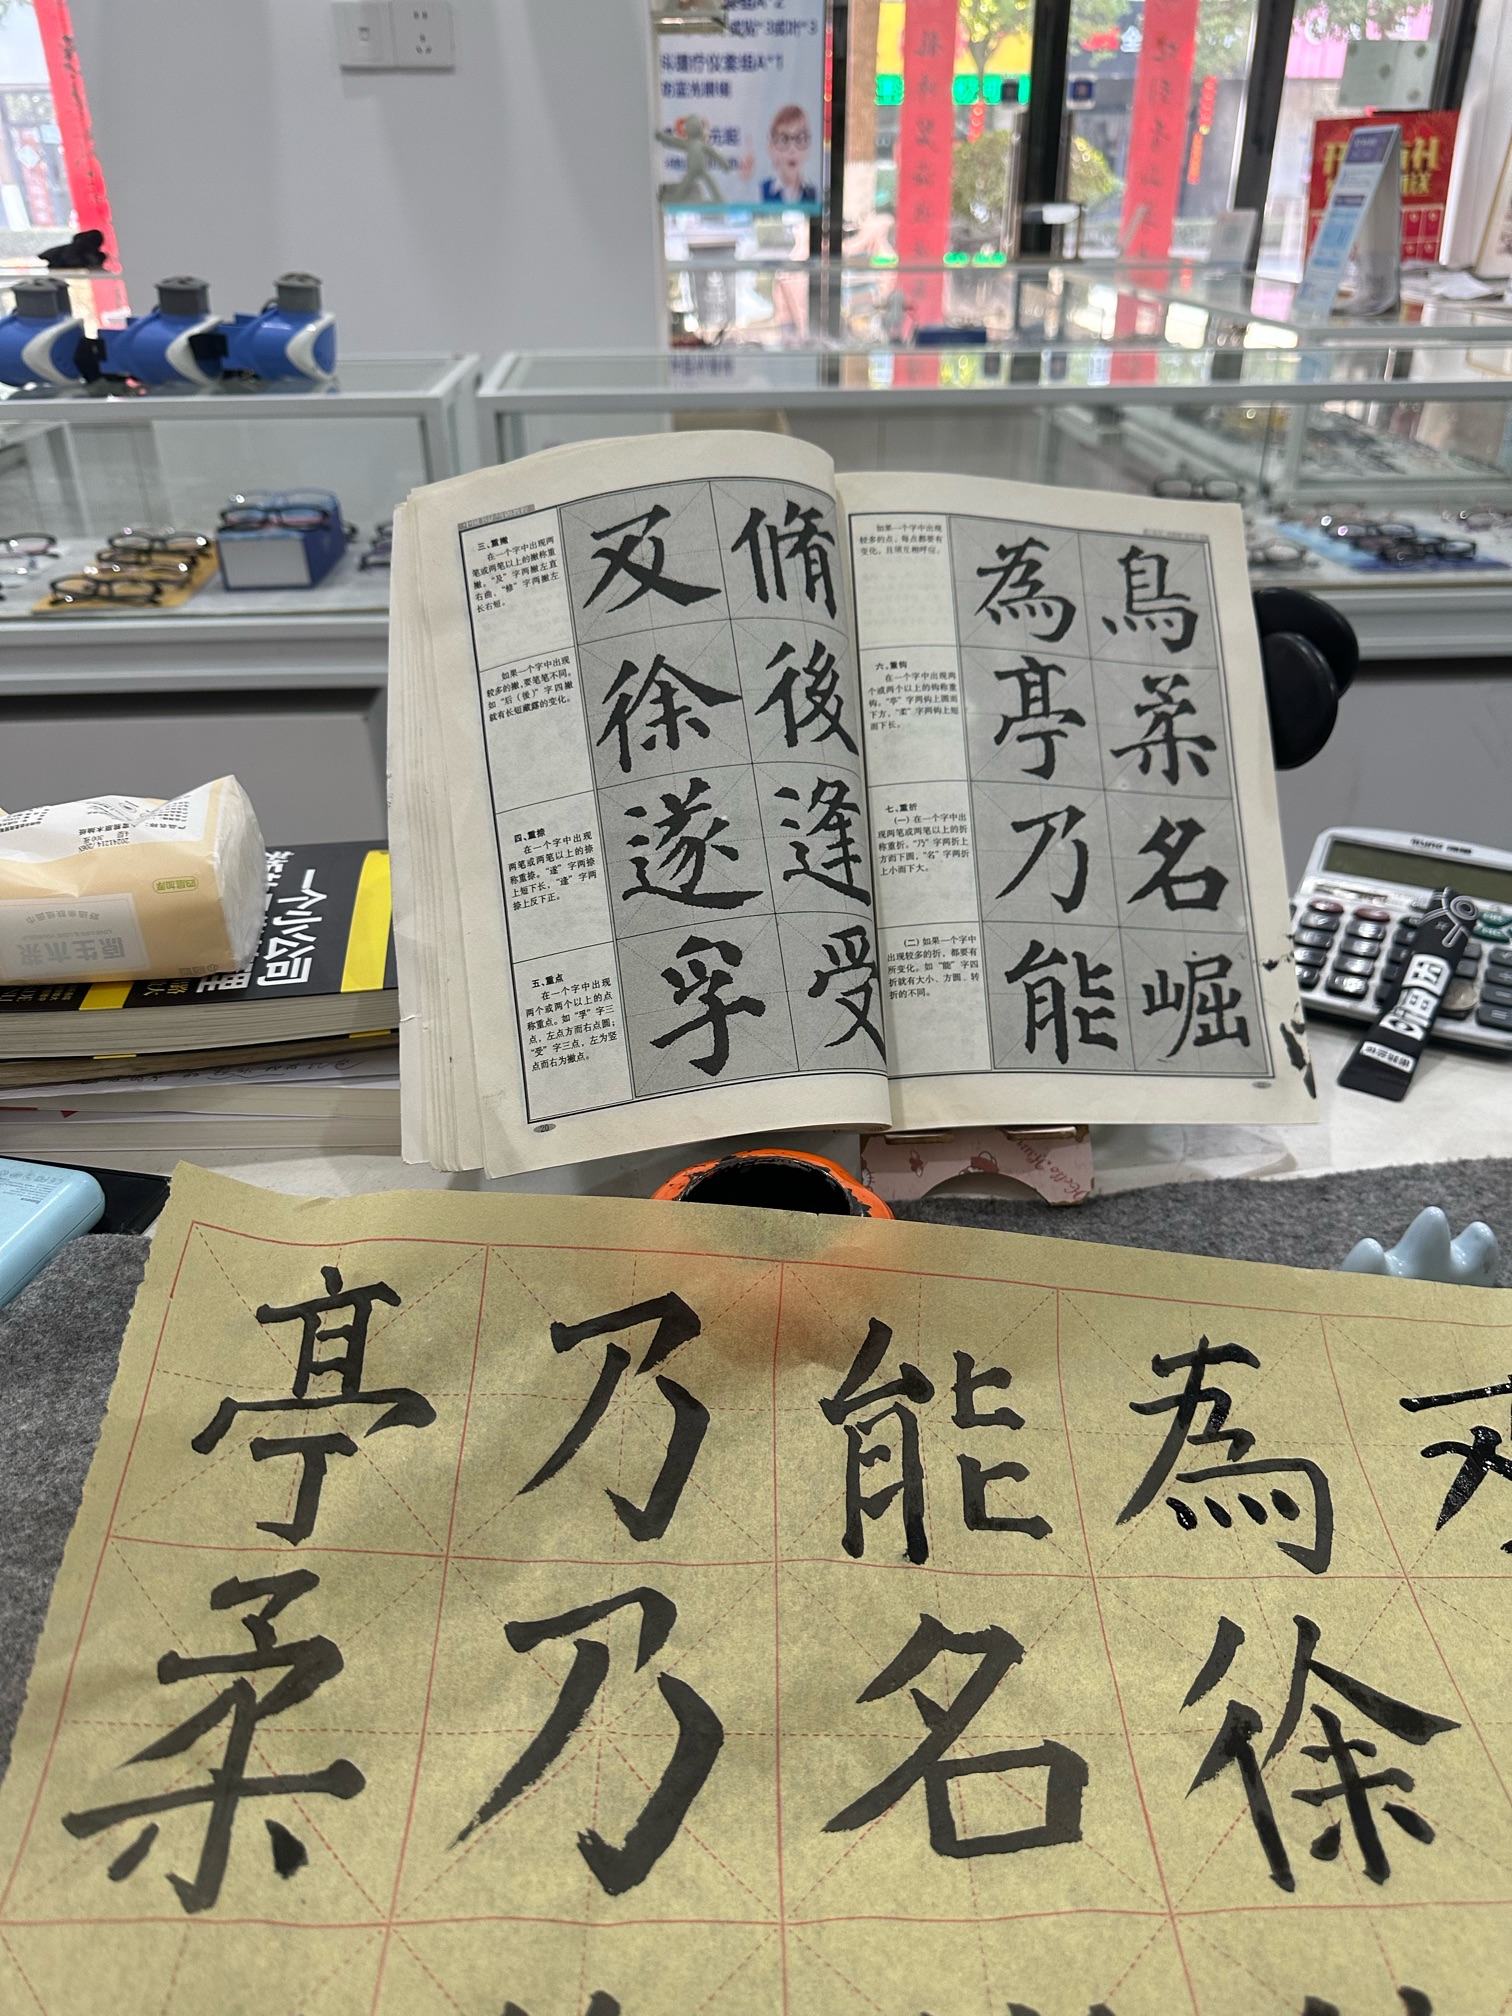 三、重撇
在一个字中出现两
笔或两笔以上的撇称重
撇。“及”字两撇左直
右曲，“修”字两撇左
长右短。
如果一个字中出现
较多的撇，要笔笔不同。
如“后（後）”字四撇
就有长短藏露的变化。
四、重捺
在一个字中出现
两笔或两笔以上的捺
称重捺。“遂”字两捺
上短下长，“逢”字两
捺上反下正。
五、重点
在一个字中出现
两个或两个以上的点
称重点。如“孚”字三
点，左点方而右点圆；
“受”字三点，左为竖
点而右为撇点。
及 脩
徐 後
遂 逢
孚 受
20
如果一个字中出现
较多的点，每点都要有
变化，且须互相呼应。
六、重钩
在一个字中出现两
个或两个以上的钩称重
钩。“亭”字两钩上圆而
下方，“柔”字两钩上短
而下长。
七、重折
（一）在一个字中出
现两笔或两笔以上的折
称重折。“乃”字两折上
方而下圆，“名”字两折
上小而下大。
（二）如果一个字中
出现较多的折，都要有
所变化。如“能”字四
折就有大小、方圆、转
折的不同。
為 鳥
亭 柔
乃 名
能 崛
一个小公司
原生木浆
四层加厚
20241214
亭 乃 能 為
柔 乃 名 徐